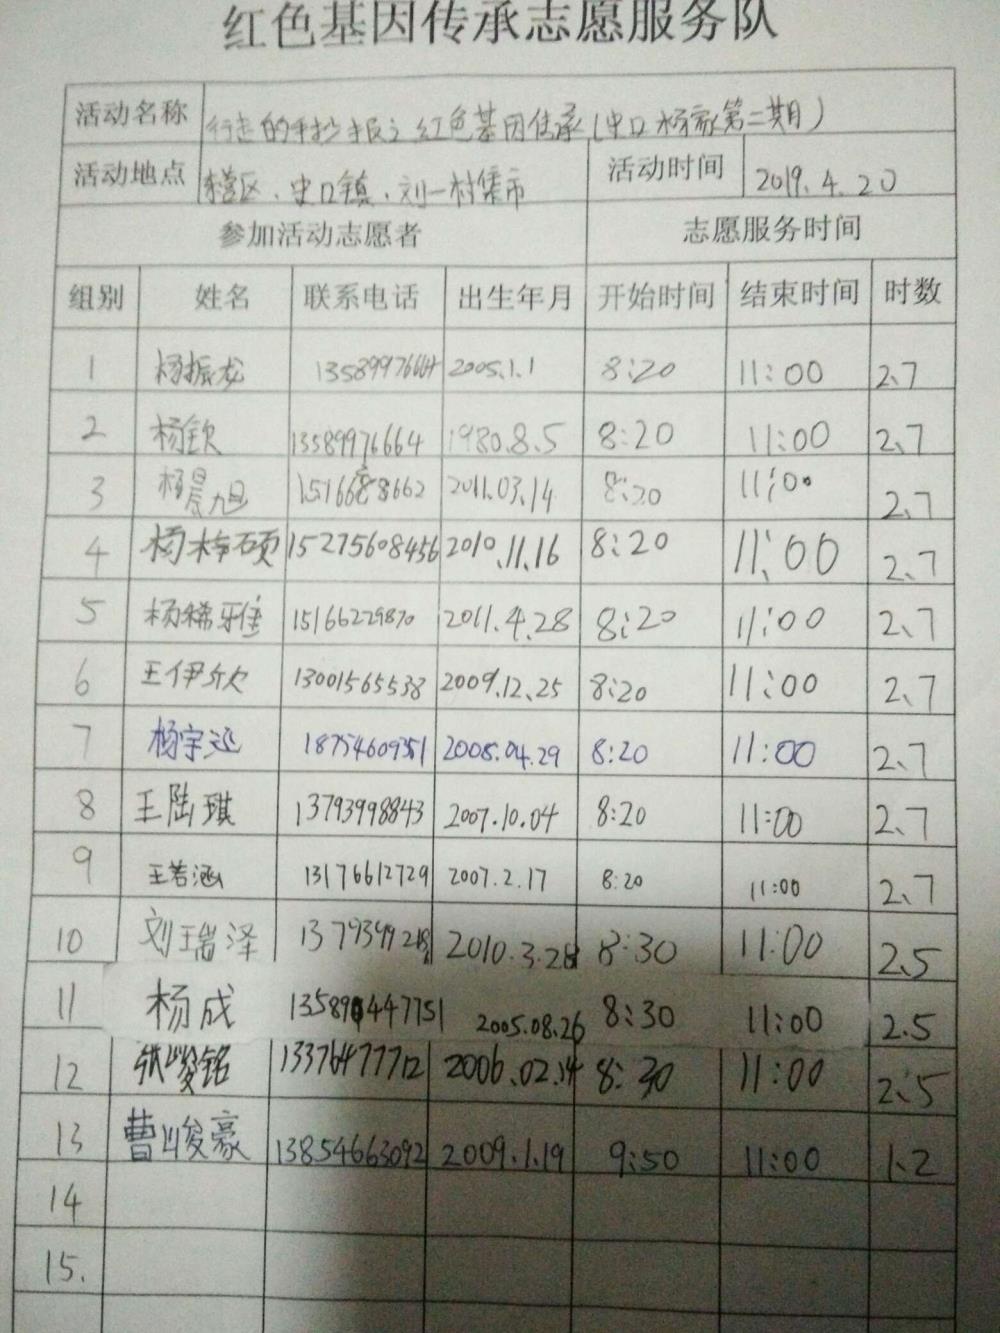 红色基因传承志愿服务队
活动名称 行走的手抄报之红色基因传承(史口杨家第二期)
活动地点 东营区、史口镇、刘一村集市 活动时间 2019.4.20
参加活动志愿者 志愿服务时间
组别 姓名 联系电话 出生年月 开始时间 结束时间 时数
1 杨振龙 2005.1.1 8:20 11:00 2.7
2 杨钦 13589976664 1980.8.5 8:20 11:00 2.7
3 杨晨旭 15166888662 2011.03.14 8:20 11:00 2.7
4 杨梓硕 15275608456 2010.11.16 8:20 11:00 2.7
5 杨稀雅 15166229870 2011.4.28 8:20 11:00 2.7
6 王伊欣 13001565538 2009.12.25 8:20 11:00 2.7
7 杨宇 18754609351 2008.04.29 8:20 11:00 2.7
8 王陆琪 13793998843 2007.10.04 8:20 11:00 2.7
9 王若涵 13176612729 2007.2.17 8:20 11:00 2.7
10 刘瑞泽 2010.3.28 8:30 11:00 2.5
11 杨成 2005.08.26 8:30 11:00 2.5
12 张峻铭 13376477712 2006.02.14 8:30 11:00 2.5
13 曹峻豪 13854663092 2009.1.19 9:50 11:00 1.2
14
15.